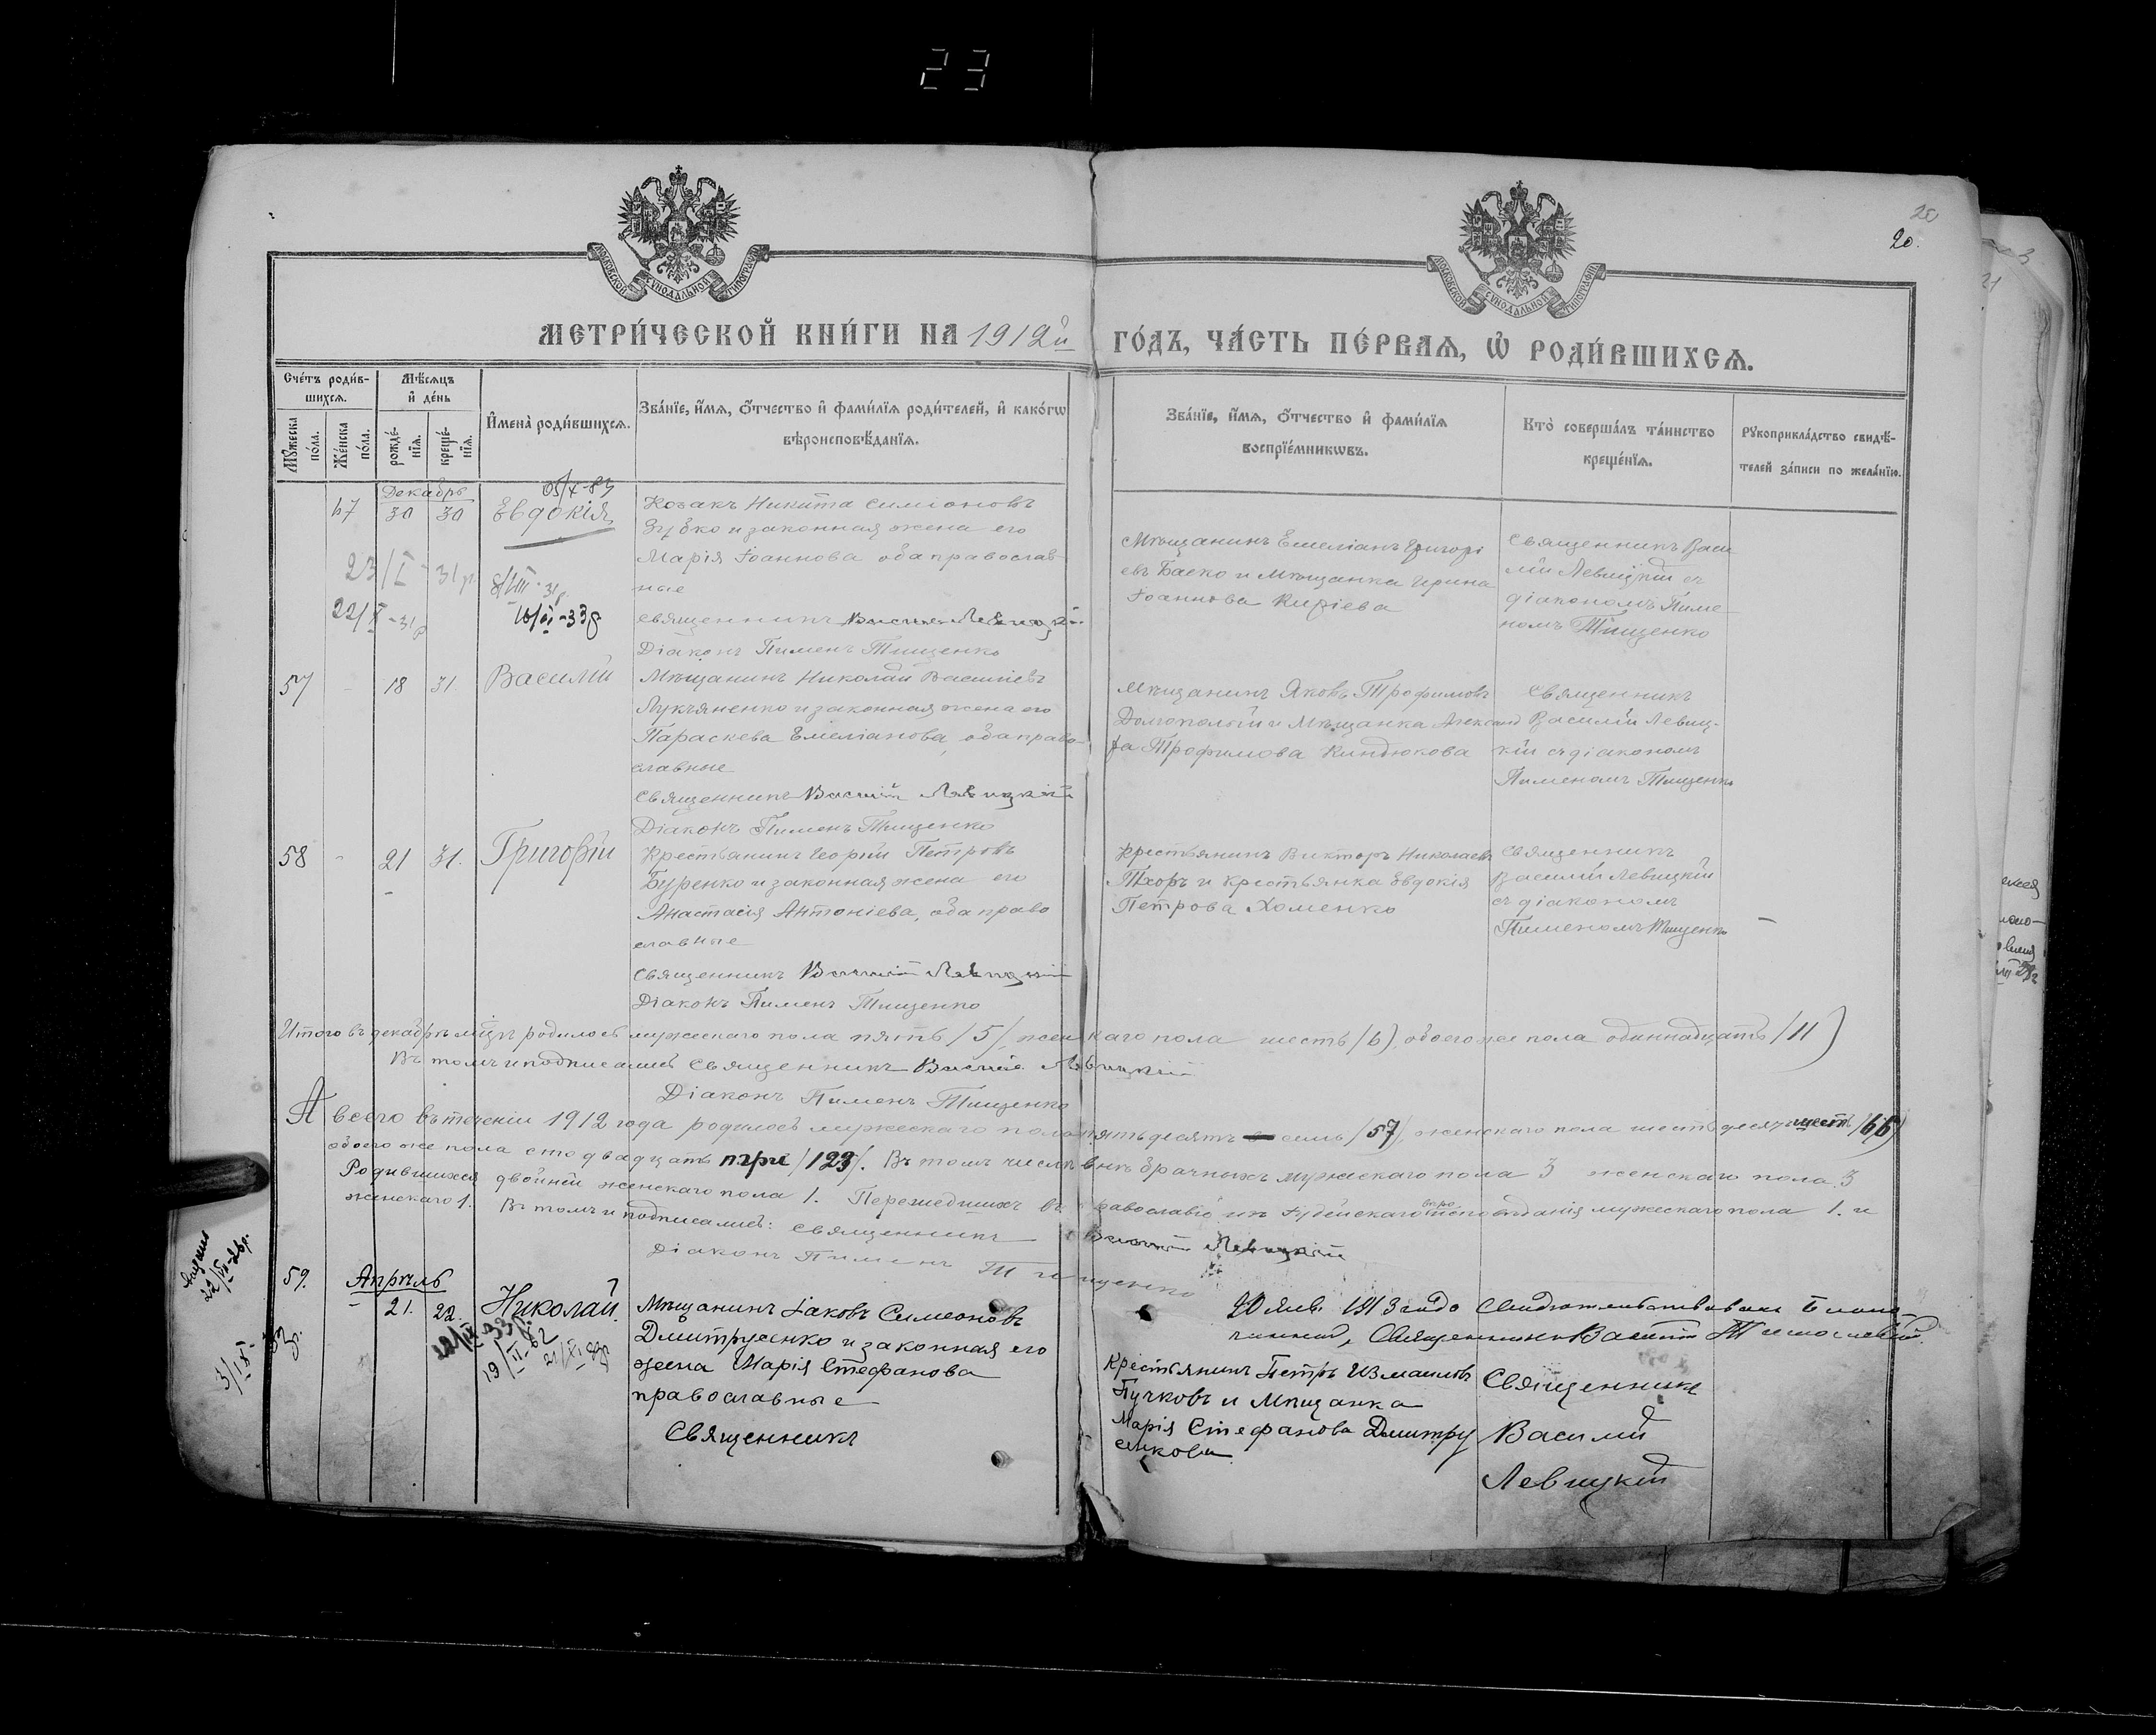 23
МОСКОВСКОЙ СУНОДАЛЬНОЙ ТИПОГРАФІИ
МОСКОВСКОЙ СУНОДАЛЬНОЙ ТИПОГРАФІИ
20
20.
МЕТРИ́ЧЕСКОЙ КНИ́ГИ НА 1912й ГО́ДЪ, ЧА́СТЬ ПЕ́РВАѦ, Ѡ РОДИ́ВШИХСѦ.
Сче́тъ роди́в-
шихсѧ.
Мꙋ́жеска по́ла.
Же́нска по́ла.
Мѣ́сѧцъ
и҆ де́нь
рожде́-
нїѧ.
креще́-
нїѧ.
И҆мена̀ роди́вшихсѧ.
Зва́нїе, и҆́мѧ, ѻ҆́тчество и҆ фами́лїѧ роди́телей, и҆ како́гѡ
вѣроисповѣ́данїѧ.
Зва́нїе, и҆́мѧ, ѻ҆́тчество и҆ фами́лїѧ
воспрїе́мникѡвъ.
Кто̀ соверша́лъ та́инство
креще́нїѧ.
Рꙋкоприкла́дство свидѣ́-
телей за́писи по жела́нїю.
Декабрь
67 30 30 Евдокія
Козакъ Никита Симіоновъ
Зубко и законная жена его
Марія Іоаннова оба православ
ные
Священникъ Василій Левицкій
Діаконъ Пименъ Тищенко
Мѣщанинъ Емеліанъ Григорі
евъ Баско и Мѣщанка Ирина
Іоаннова Киріева
Священникъ Васи
лій Левицкій съ
діакономъ Пиме
номъ Тищенко
23/I - 31 р.
8/VIII - 31 р.
57 - 18 31 Василій
Мѣщанинъ Николай Василіевъ
Лукъяненко и законная жена его
Параскева Емеліанова, оба право
славные
Священникъ Василій Левицкій
Діаконъ Пименъ Тищенко
Мѣщанинъ Яковъ Трофимовъ
Долгополый и Мѣщанка Александ
ра Трофимова Киндюкова
Священникъ
Василій Левиц-
кій съ діакономъ
Пименомъ Тищенко
58 - 21 31. Григорій
Крестьянинъ Георгій Петровъ
Буренко и законная жена его
Анастасія Антоніева, оба право
славные
Священникъ Василій Левицкій
Діаконъ Пименъ Тищенко
Крестьянинъ Викторъ Николаевъ
Тхоръ и крестьянка Евдокія
Петрова Хоменко
Священникъ
Василій Левицкій
съ діакономъ
Пименомъ Тищенко
Итого въ декабрѣ мцѣ родилось мужескаго пола пять /5/, женскаго пола шесть /6/, обоего же пола одиннадцать /11/
Въ томъ и подписались Священникъ Василій Левицкій
Діаконъ Пименъ Тищенко
А всего въ теченіи 1912 года родилось мужескаго пола пятьдесятъ семь /57/, женскаго пола шестьдесятъ шесть /66/
обоего же пола сто двадцать три /123/. Въ томъ числѣ внѣбрачныхъ мужескаго пола 3 женскаго пола 3
Родившихся двойней женскаго пола 1. Перешедшихъ въ православіе изъ Іудейскаго вѣроисповѣданія мужескаго пола 1. и
женскаго 1. Въ томъ и подписались: Священникъ Василій Левицкій
Діаконъ Пименъ Тищенко
59. Апрѣль
- 21. 22. Николай
Мѣщанинъ Іаковъ Симеоновъ
Дмитрусенко и законная его
жена Марія Стефанова
православные
Священникъ
20 янв. 1913 года Свидѣтельствовалъ Благо-
чинный, Священникъ Василій
Крестьянинъ Петръ Измаиловъ
Пучковъ и Мѣщанка
Марія Стефанова Дмитру
сенкова
Священникъ
Василій
Левицкій